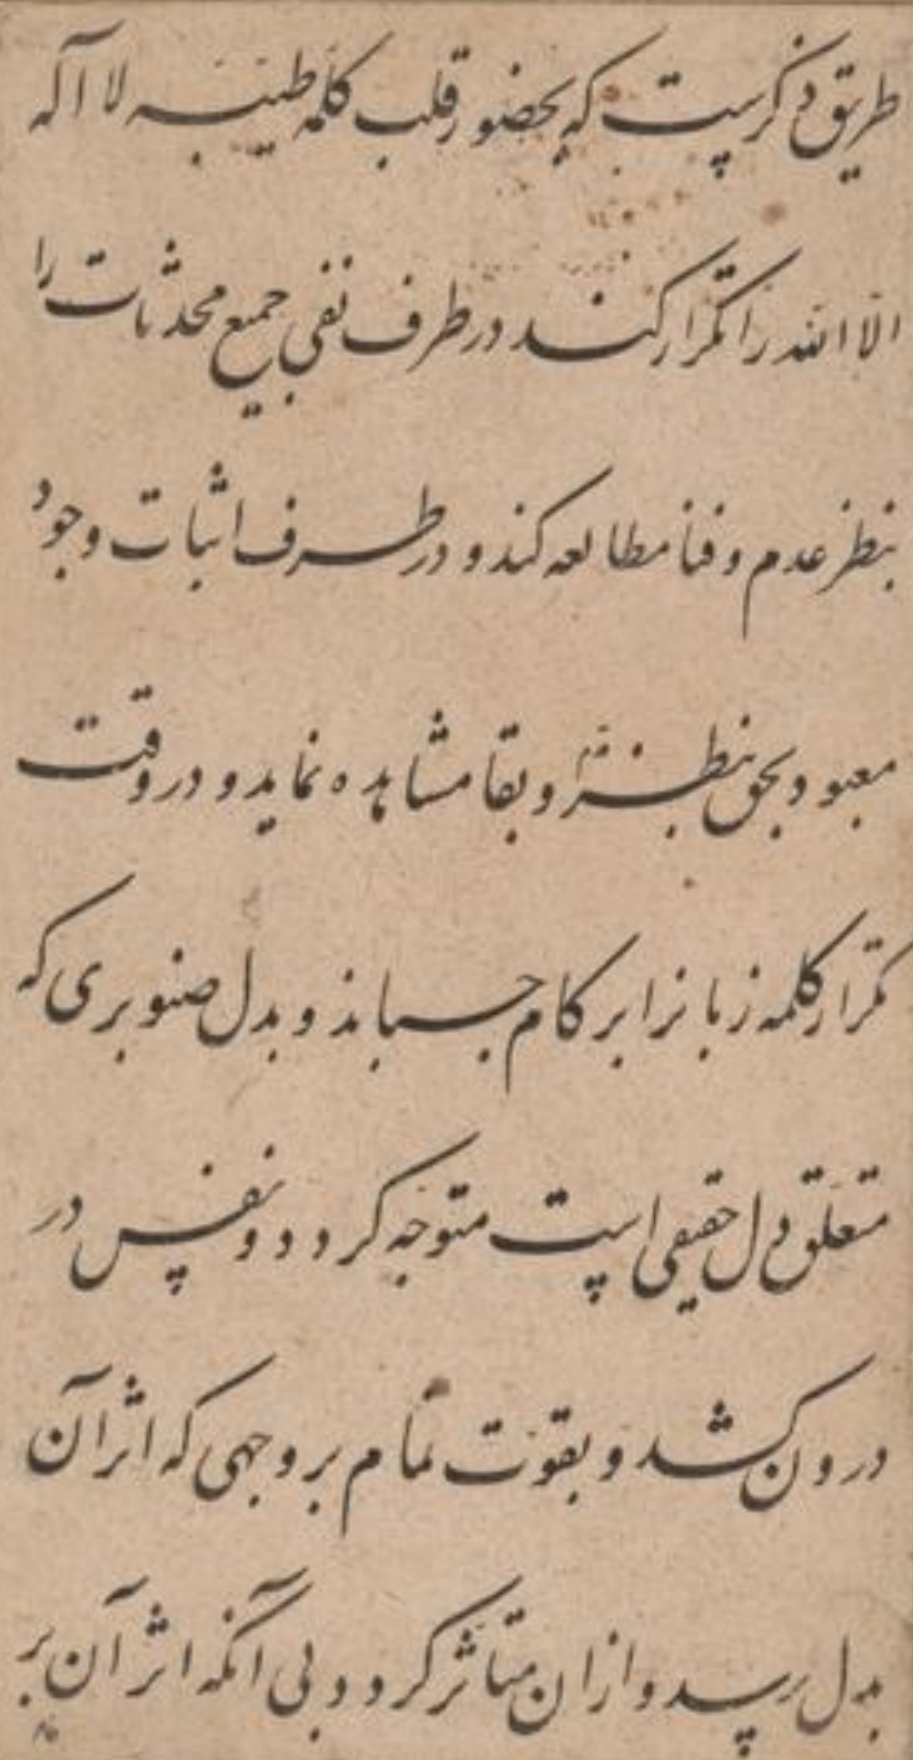 طریق ذکرست که بحضور قلب کلمه طیبه لا اله
الا الله را تکرار کند در طرف نفی جمیع محدثات را
بنظر عدم و فنا مطالعه کند و در طرف اثبات وجود
معبود بحق بنظر و بقا مشاهده نماید و در وقت
تکرار کلمه زبانرا بر کام چسباند و بدل صنوبری که
متعلق دل حقیقی است متوجه کردد و نفس در
درون کشد و بقوت تمام بر وجهی که اثر آن
بدل رسد و ازان متاثر کردد بی آنکه اثر آن بر